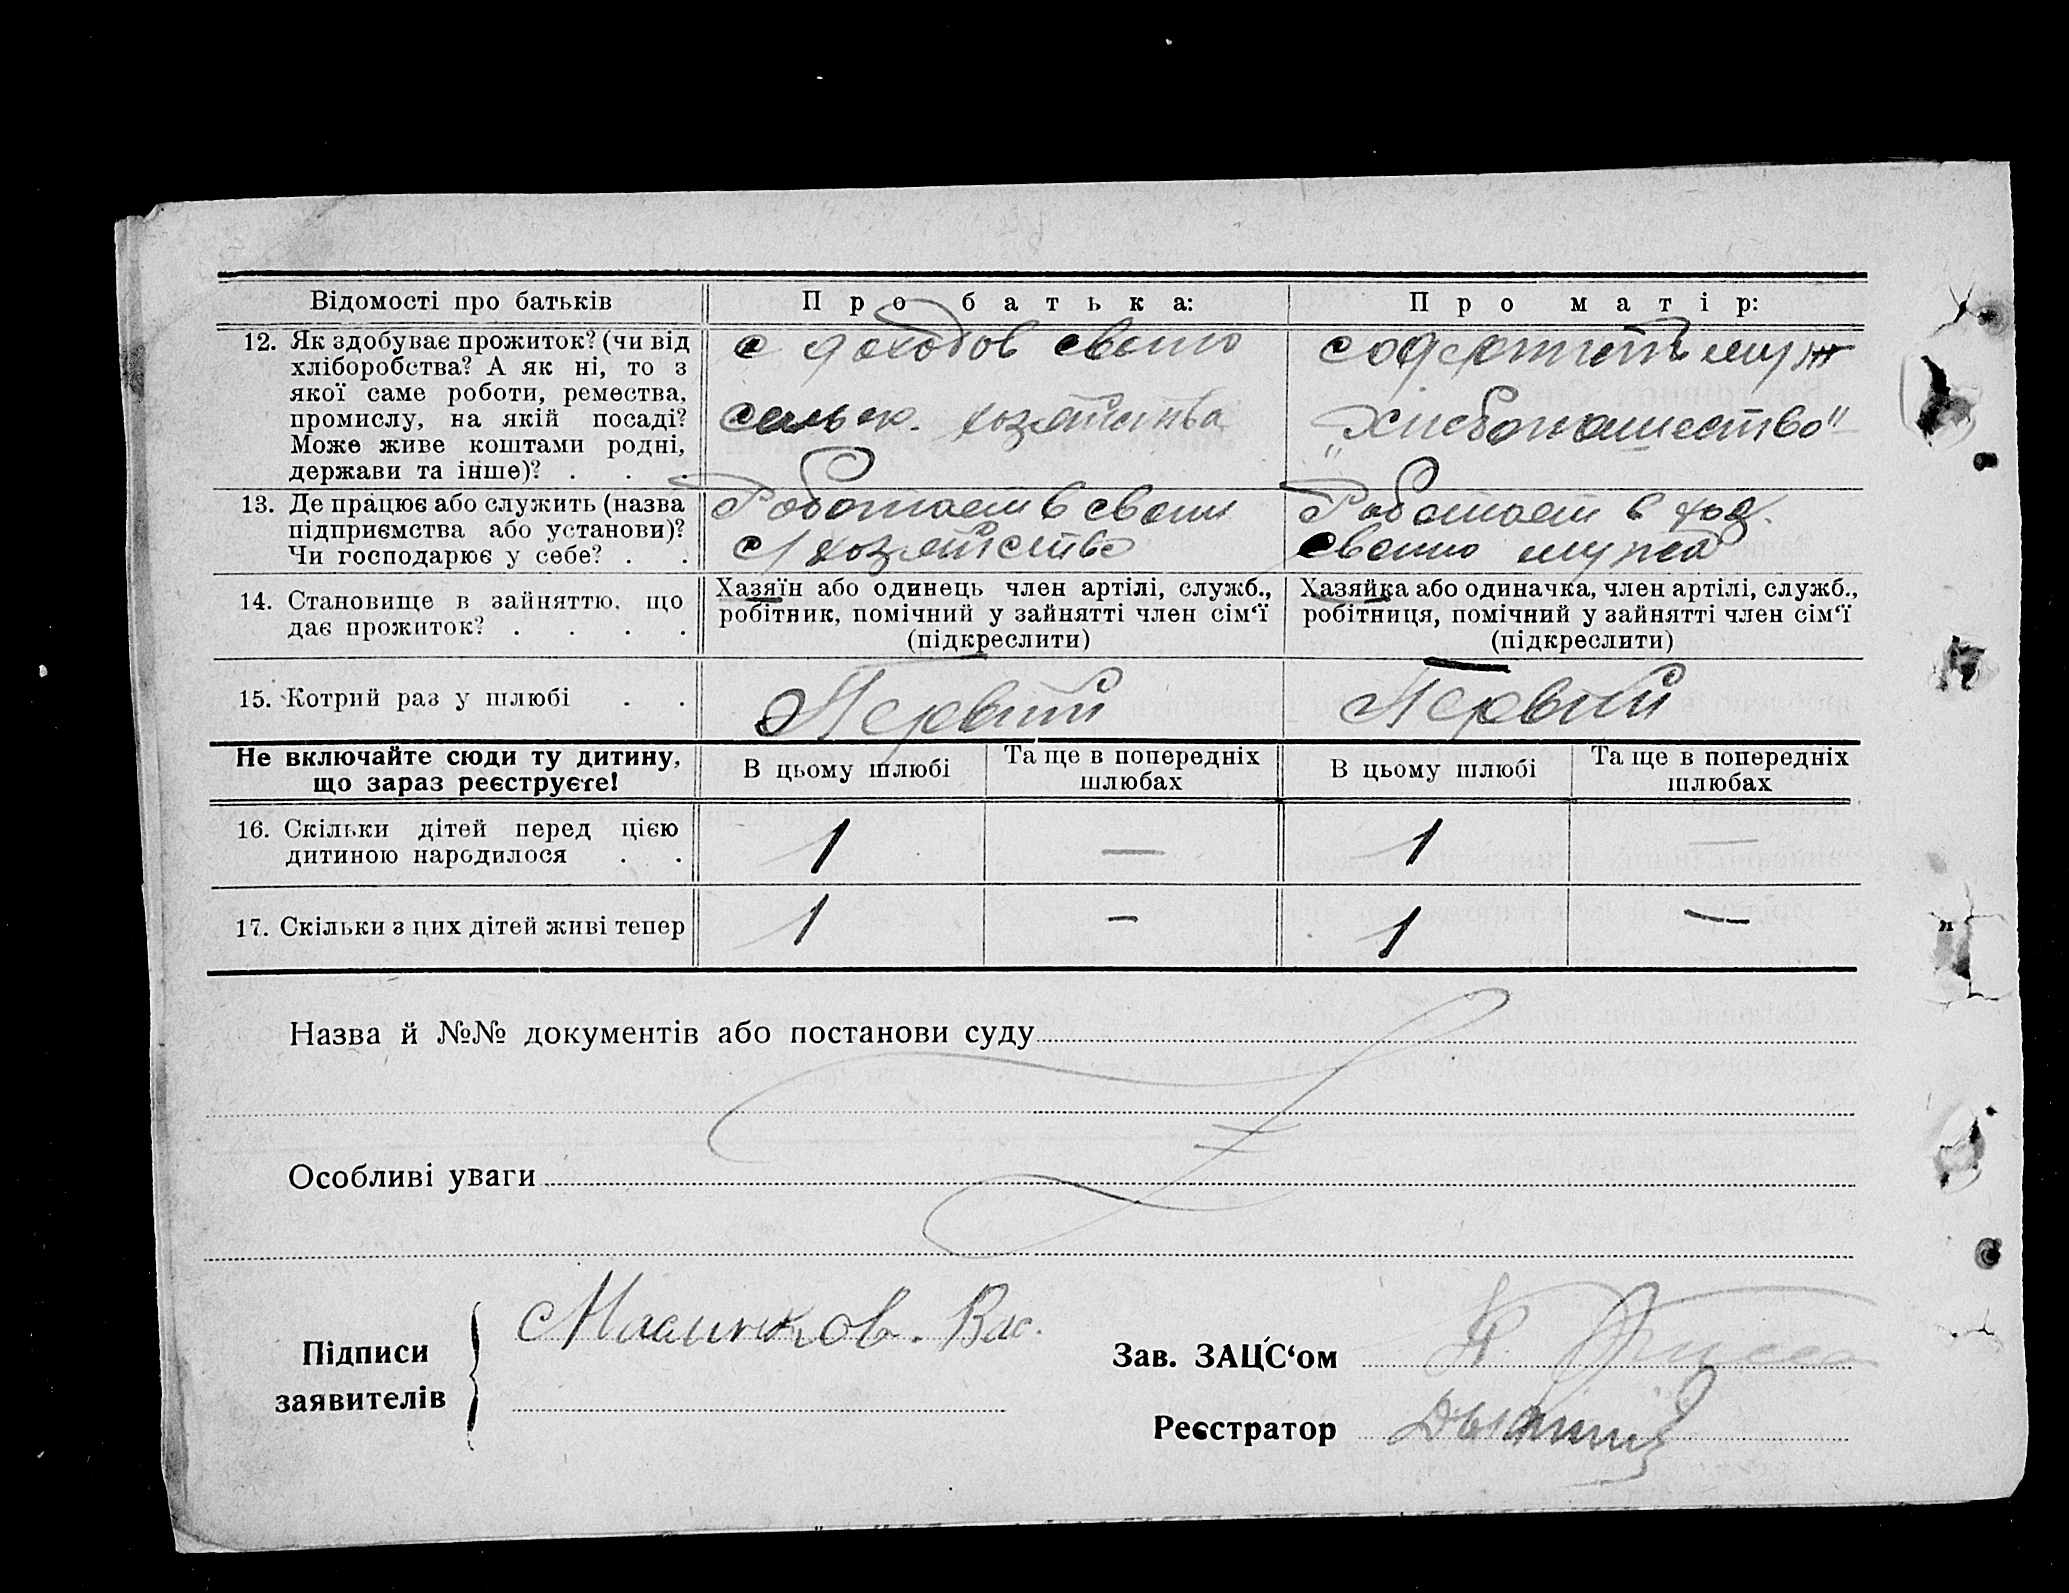 Відомості про батьків
Про батька:
Про матір:
12. Як здобуває прожиток? (чи від
хліборобства? А як ні, то з
якої саме роботи, ремества,
промислу, на якій посаді?
Може живе коштами родні,
держави та інше)? . . .
с доходов своего
сельск. хозяйства
содержит муж
„Хлебопашество"
13. Де працює або служить (назва
підприємства або установи)?
Чи господарює у себе? . .
Работает в своем
с/хозяйстве
Работает в хоз.
своего мужа
14. Становище в зайняттю, що
дає прожиток? . . . .
Хазяїн або одинець член артілі, служб.,
робітник, помічний у зайнятті член сім‘ї
(підкреслити)
Хазяйка або одиначка, член артілі, служб.,
робітниця, помічний у зайнятті член сім‘ї
(підкреслити)
15. Котрий раз у шлюбі . .
Первый
Первый
Не включайте сюди ту дитину,
що зараз реєструєте!
В цьому шлюбі
Та ще в попередніх
шлюбах
В цьому шлюбі
Та ще в попередніх
шлюбах
16. Скільки дітей перед цією
дитиною народилося . .
1 — 1 —
17. Скільки з цих дітей живі тепер
1 — 1 —
Назва й №№ документів або постанови суду
Особливі уваги
Підписи
заявителів
Вас.
Зав. ЗАЦС‘ом
Реєстратор